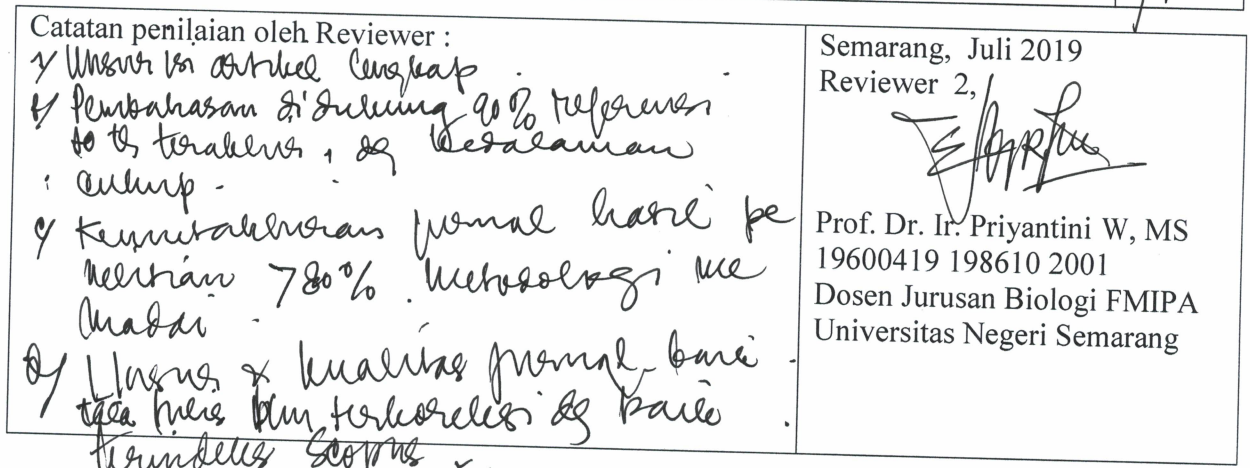 Catatan penilaian oleh Reviewer :
a/ Unsur isi artikel lengkap .
b/ Pembahasan didukung 90% referensi
10 th terakhir, dg kedalaman
cukup .
c/ Kemutakhiran jurnal hasil pe
nelitian >80%. Metodologi me
madai .
d/ Unsur & kualitas jurnal baik .
tata tulis blm terkoreksi dg baik .
terindeks Scopus
Semarang, Juli 2019
Reviewer 2,
Prof. Dr. Ir. Priyantini W, MS
19600419 198610 2001
Dosen Jurusan Biologi FMIPA
Universitas Negeri Semarang